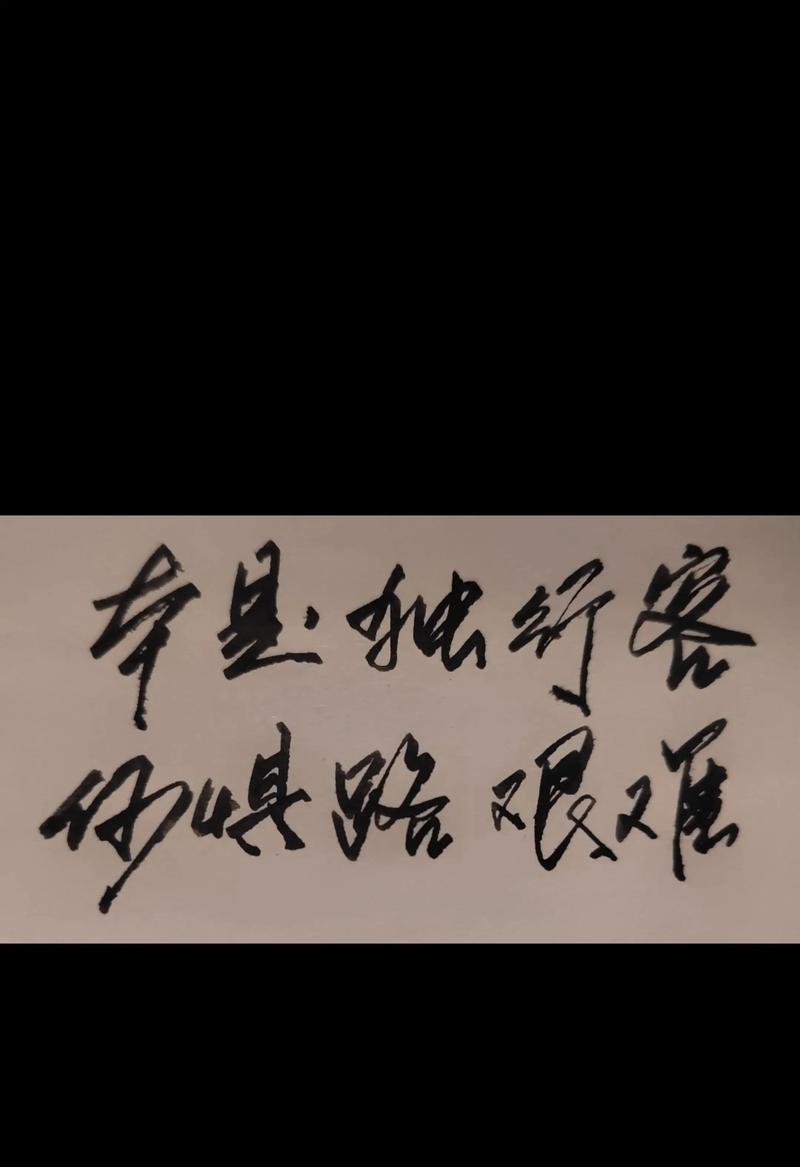 本是独行客
何惧路艰难